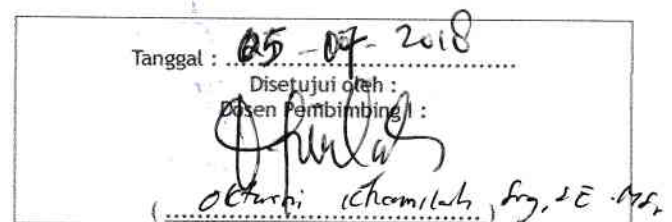 Tanggal : 05 - 07 - 2018
Disetujui oleh :
Dosen Pembimbing I :
( Khamilah ) Srg, SE. MSi